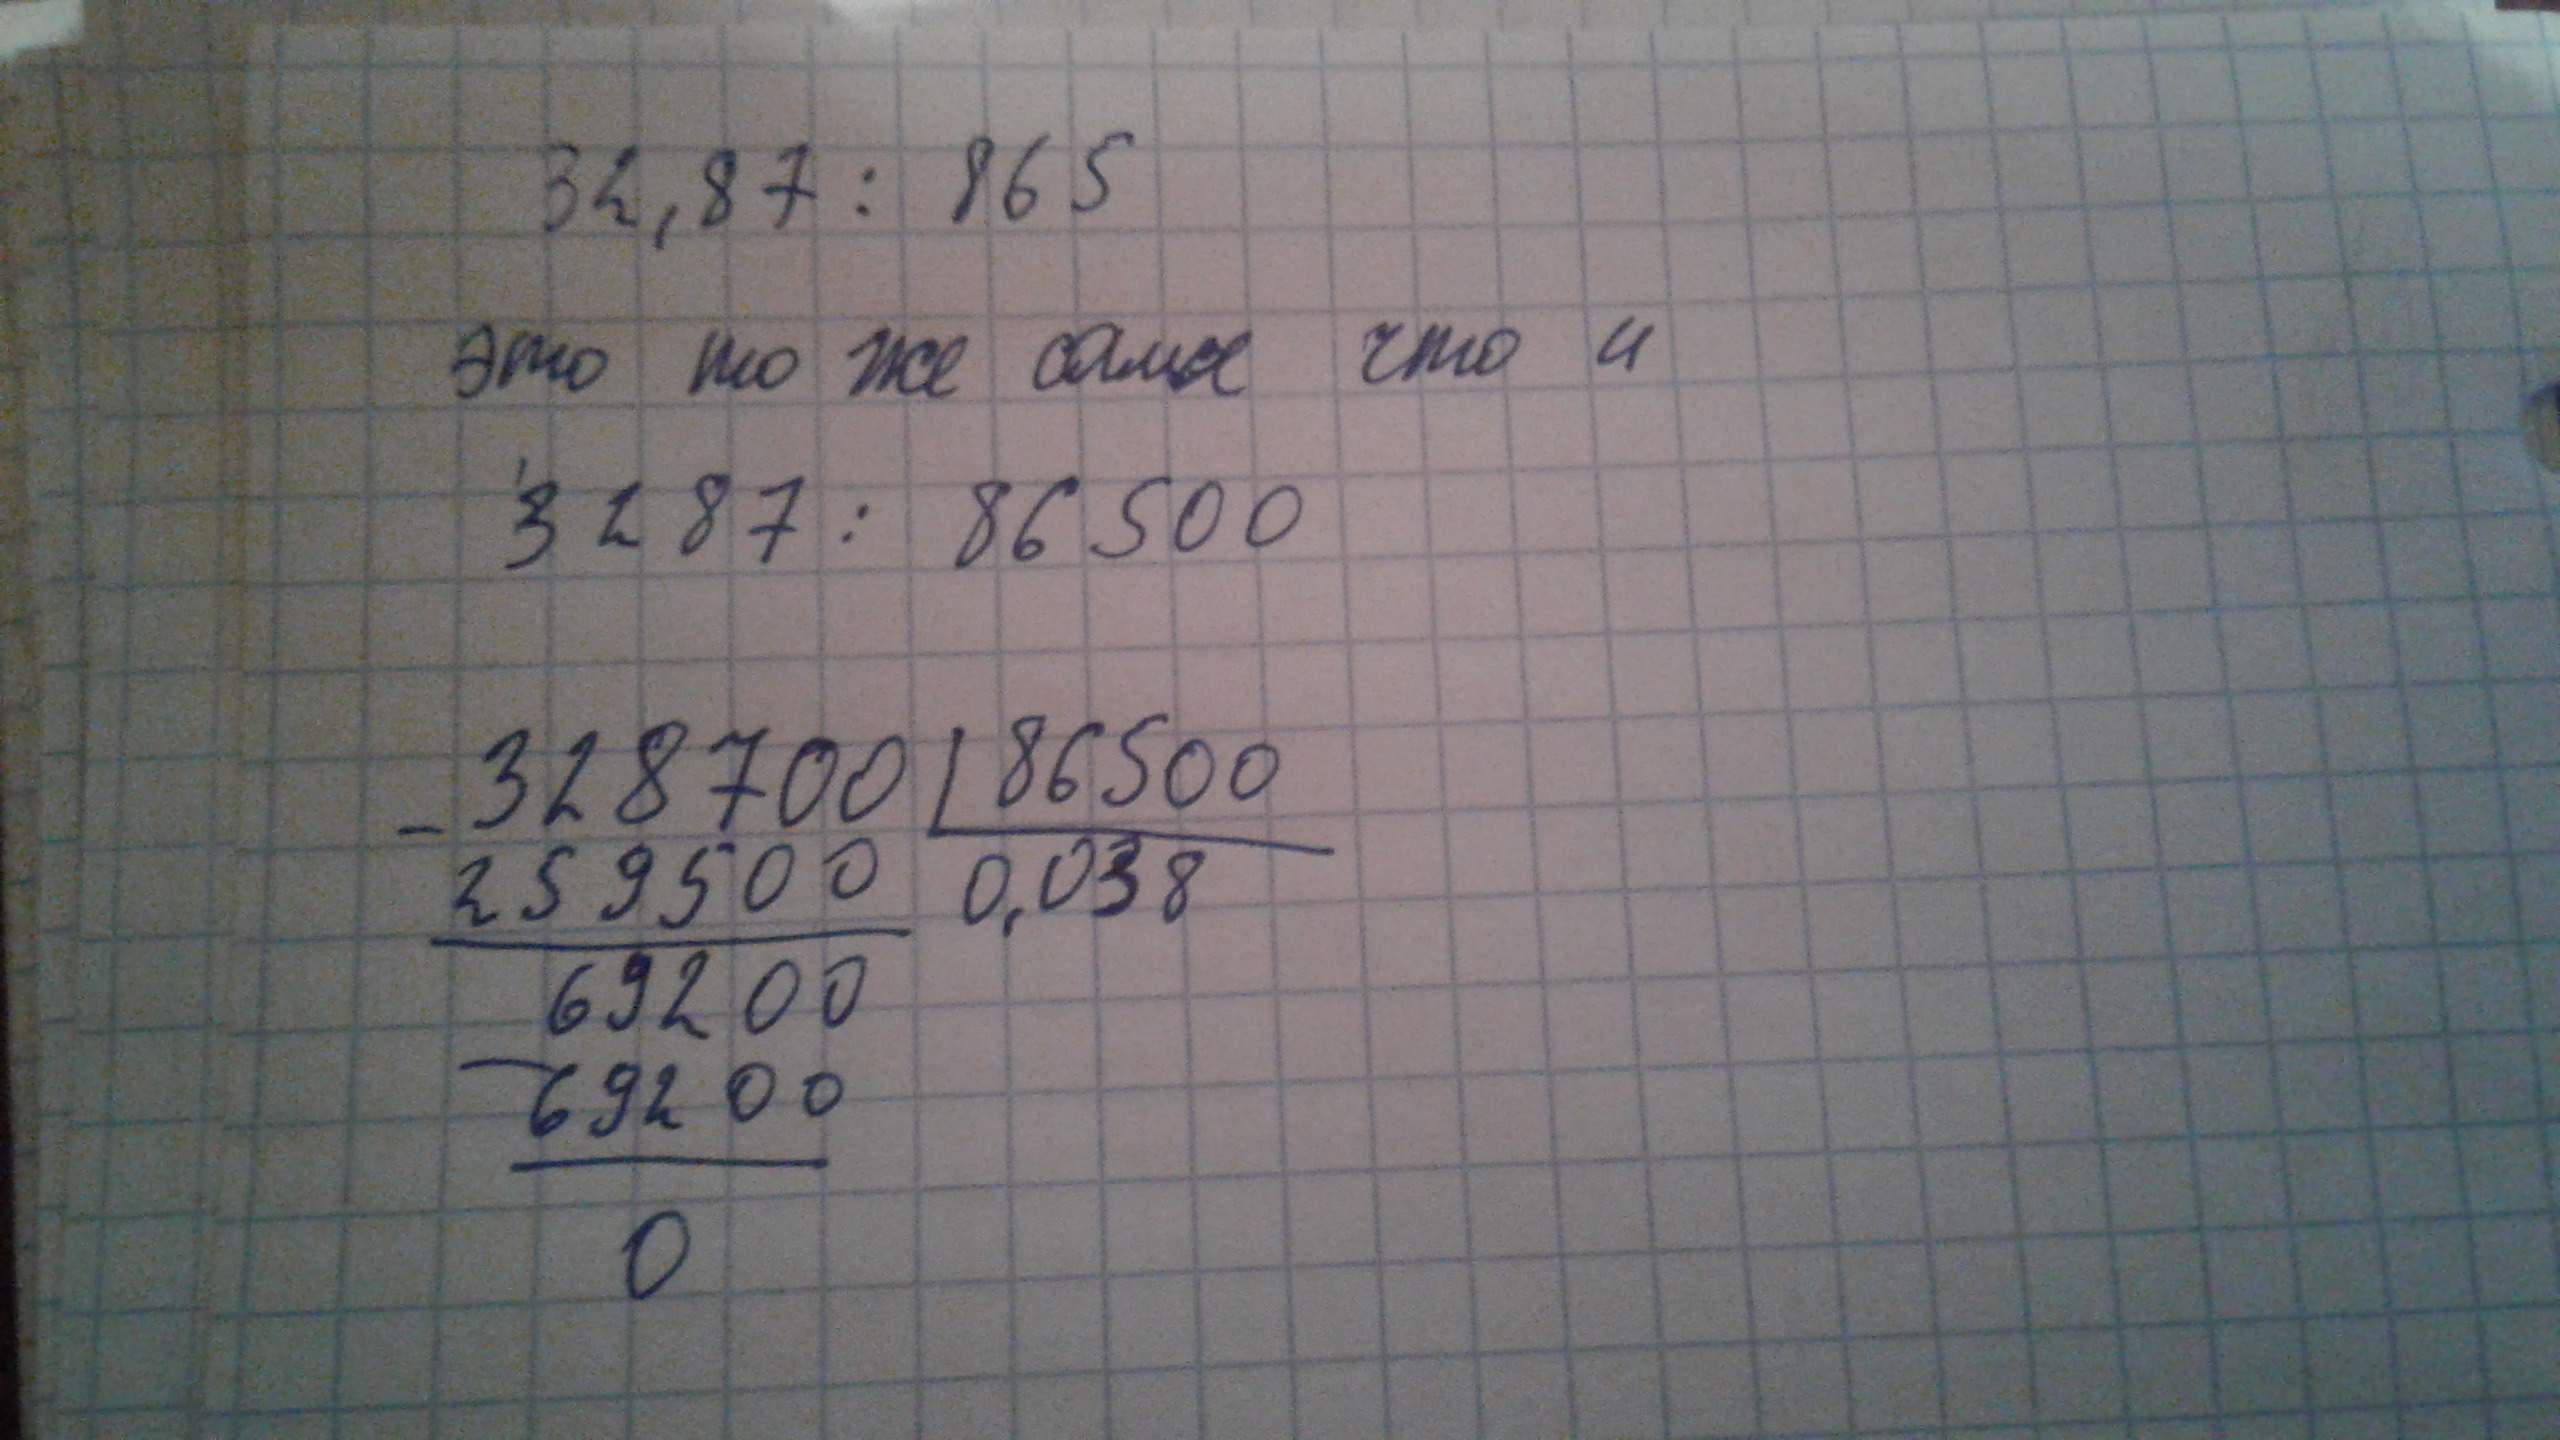 32,87 : 865
это то же самое что и
3287 : 86500
- 328700 | 86500
259500 0,038
69200
- 69200
0